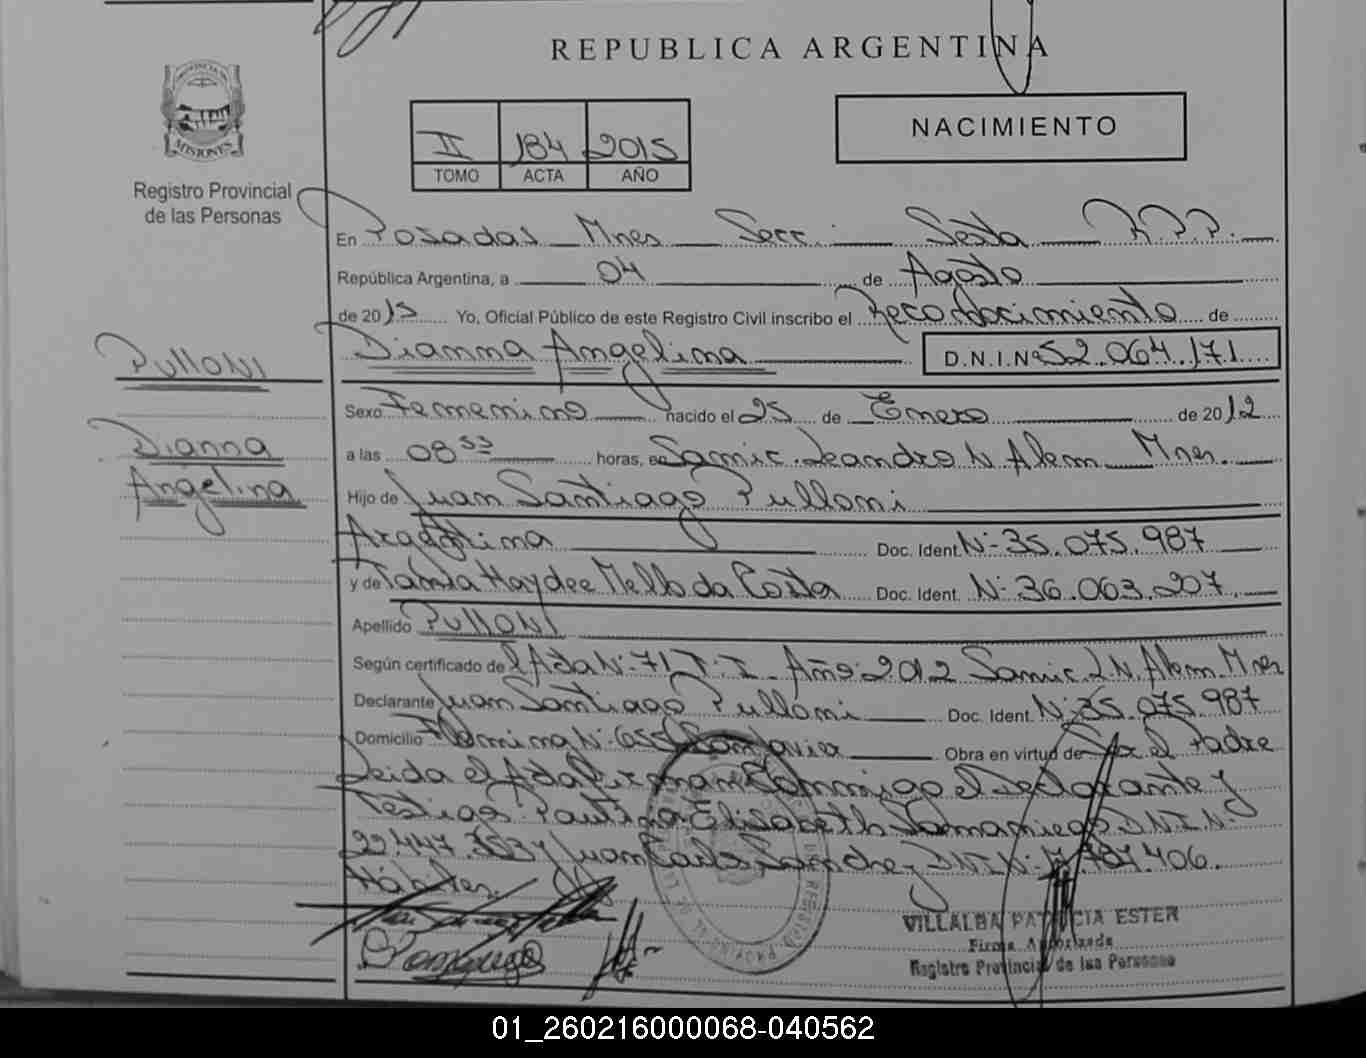 REPUBLICA ARGENTINA
PROVINCIA DE
MISIONES
Registro Provincial
de las Personas
II 184 2015
TOMO ACTA AÑO
NACIMIENTO
En Posadas Mnes Secc. Sexta R.P.P.
República Argentina, a 04 de Agosto
de 2015 Yo, Oficial Público de este Registro Civil inscribo el Reconocimiento de
Dianna Angelina D.N.I.Nº 52.064.171
PULLONI
Dianna
Angelina
Sexo Femenino nacido el 25 de Enero de 2012
a las 08 33 horas, en Samic. Leandro N Alem Mnes.
Hijo de Juan Santiago Pulloni
Argentina Doc. Ident. Nº 35.075.987
y de Tania Haydee Mello da Costa Doc. Ident. Nº 36.063.207
Apellido PULLONI
Según certificado de el Acta Nº 71 T: I Año 2012 Samic L.N. Alem Mnes
Declarante Juan Santiago Pulloni Doc. Ident. Nº 35.075.987
Domicilio Nº San Javier Obra en virtud de Ser el Padre
Leida el Acta firman conmigo el Declarante y
Testigos: Elisabeth Samaniego D.N.I.Nº
22.447. y Juan Carlos Sanchez DNI Nº .787.406.
Hábiles.
VILLALBA PATRICIA ESTER
Firma Autorizada
Registro Provincial de las Personas
01_260216000068-040562